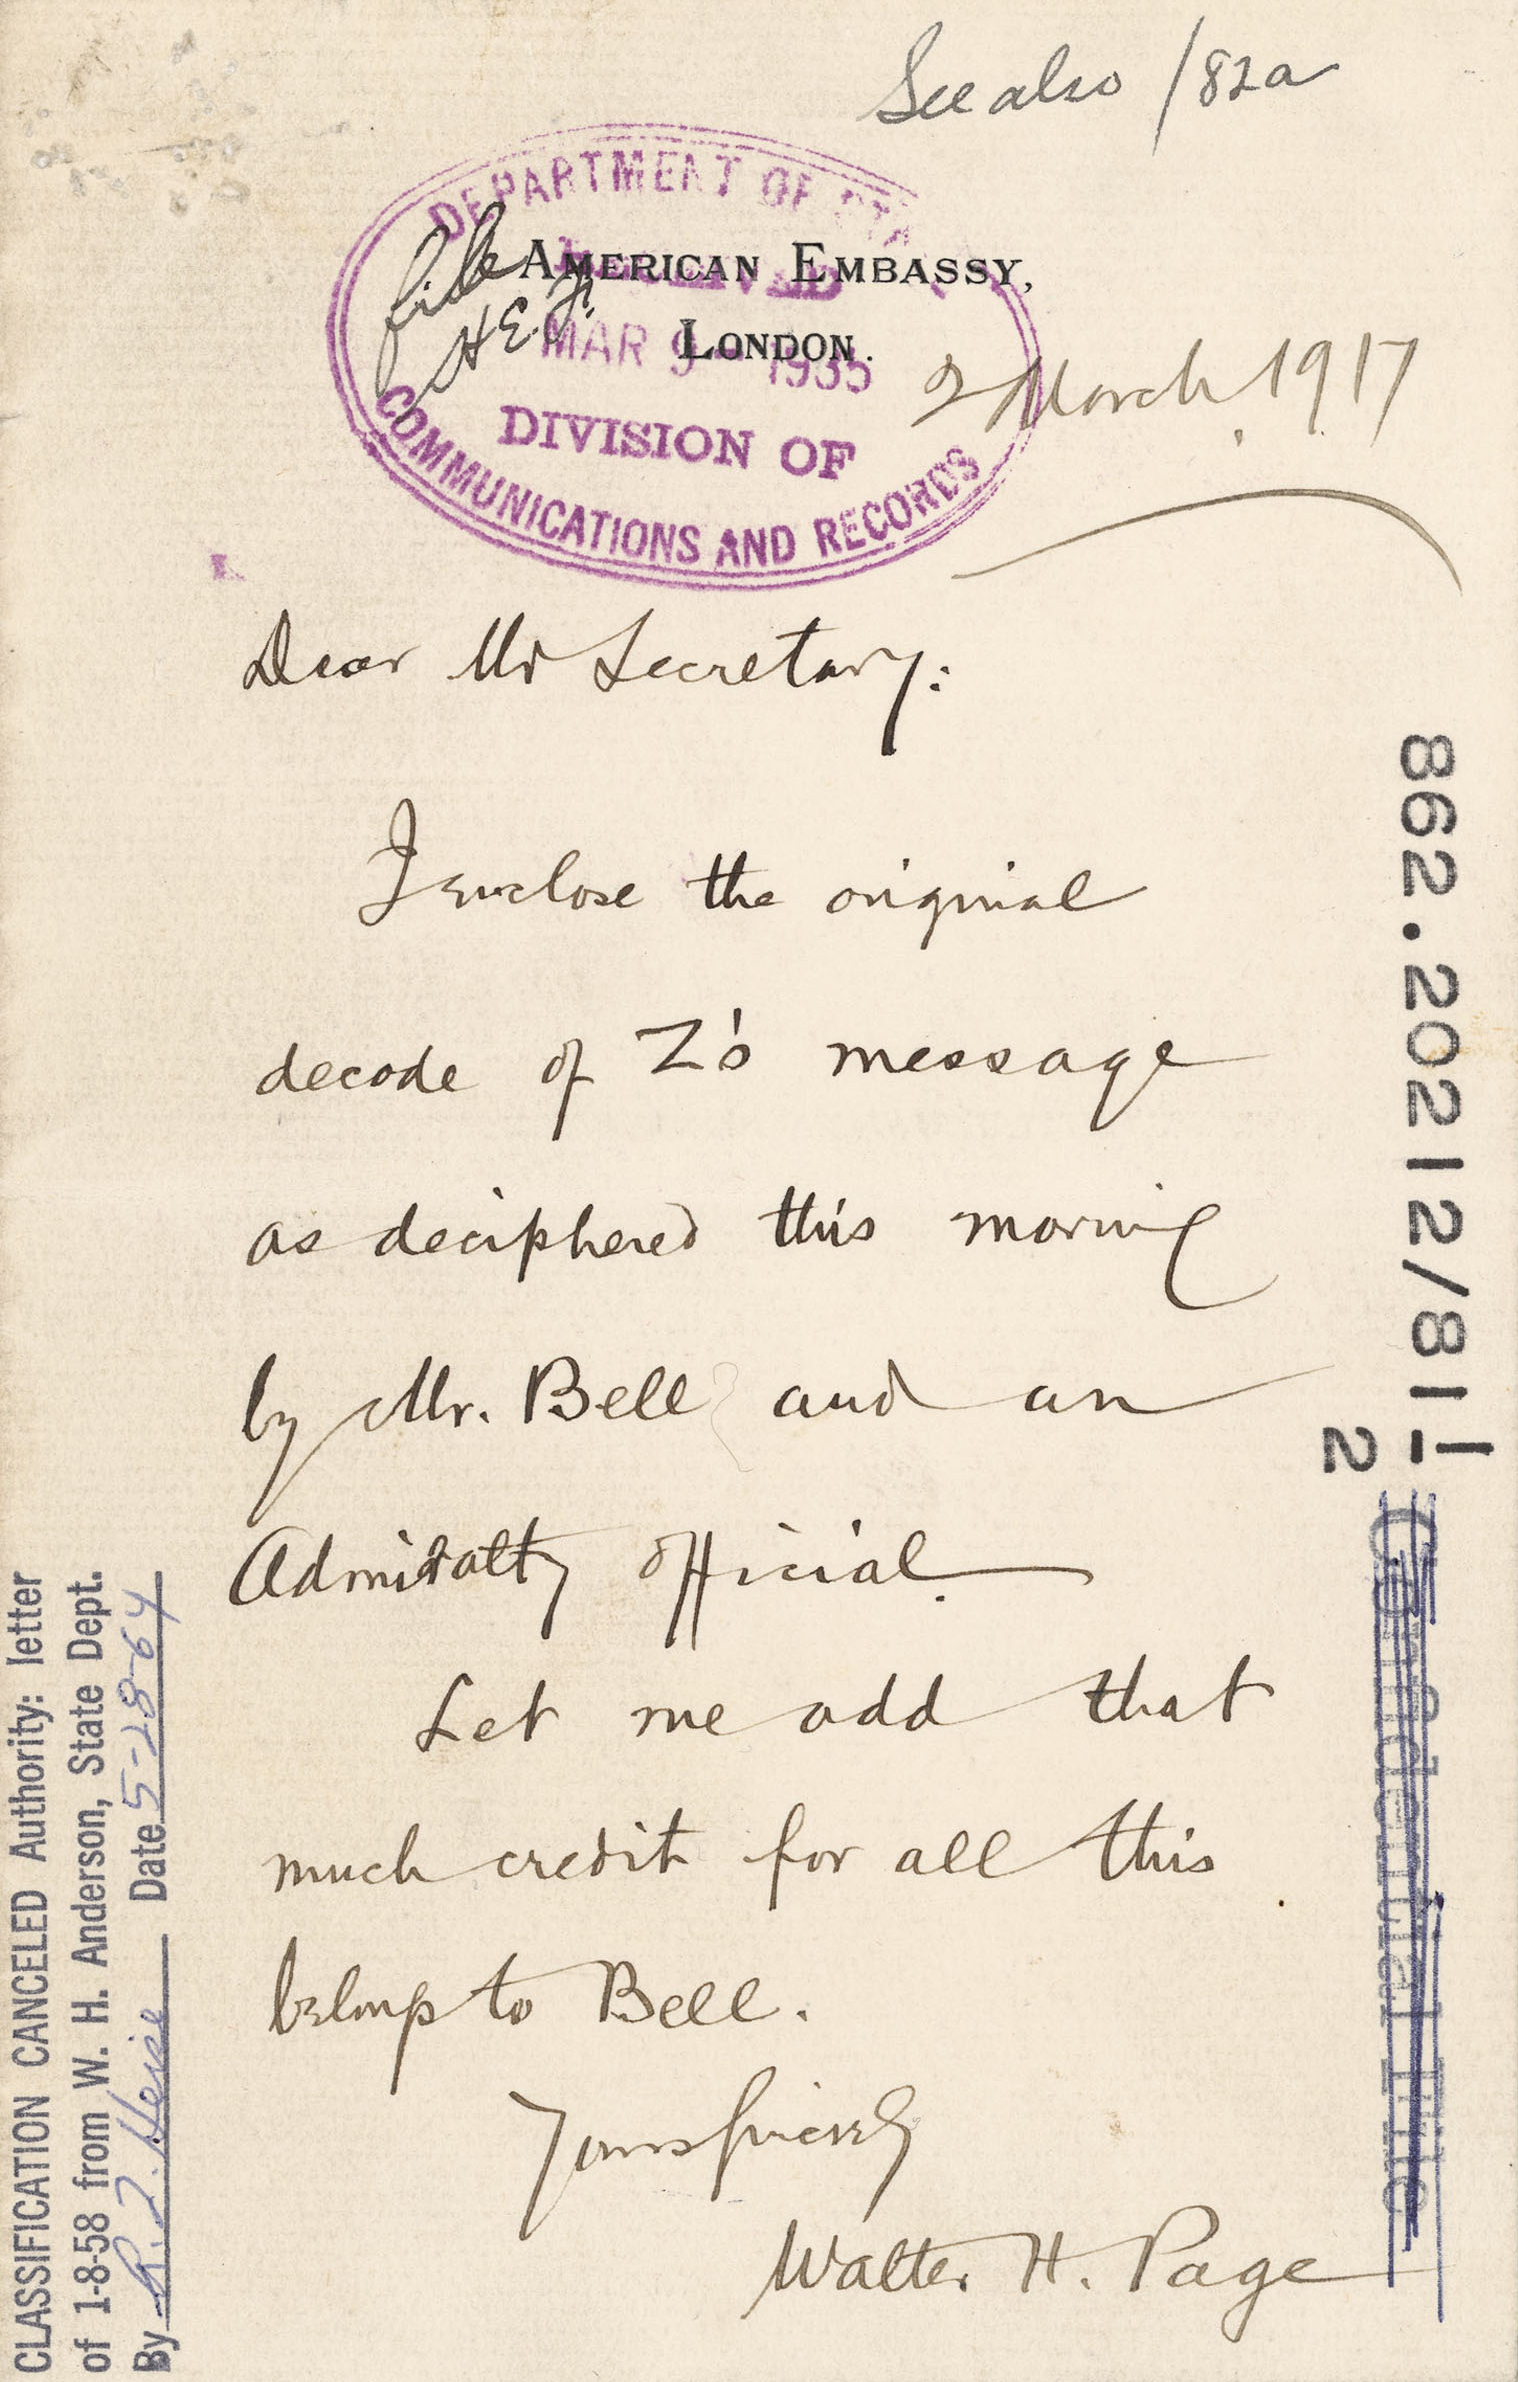 See also /82a
DEPARTMENT OF STA
RECEIVED
MAR 9 - 1935
DIVISION OF
COMMUNICATIONS AND RECORDS
file
AMERICAN EMBASSY,
LONDON.
2 March, 1917
Dear Mr Secretary:
I enclose the original
decode of Z's message
as deciphered this morning
by Mr. Bell and an
Admiralty official.
Let me add that
much credit for all this
belongs to Bell.
Yours sincerely
Walter H. Page
862.20212/81 1/2
Confidential File
CLASSIFICATION CANCELED Authority: letter
of 1-8-58 from W. H. Anderson, State Dept.
By Date 5-28-64